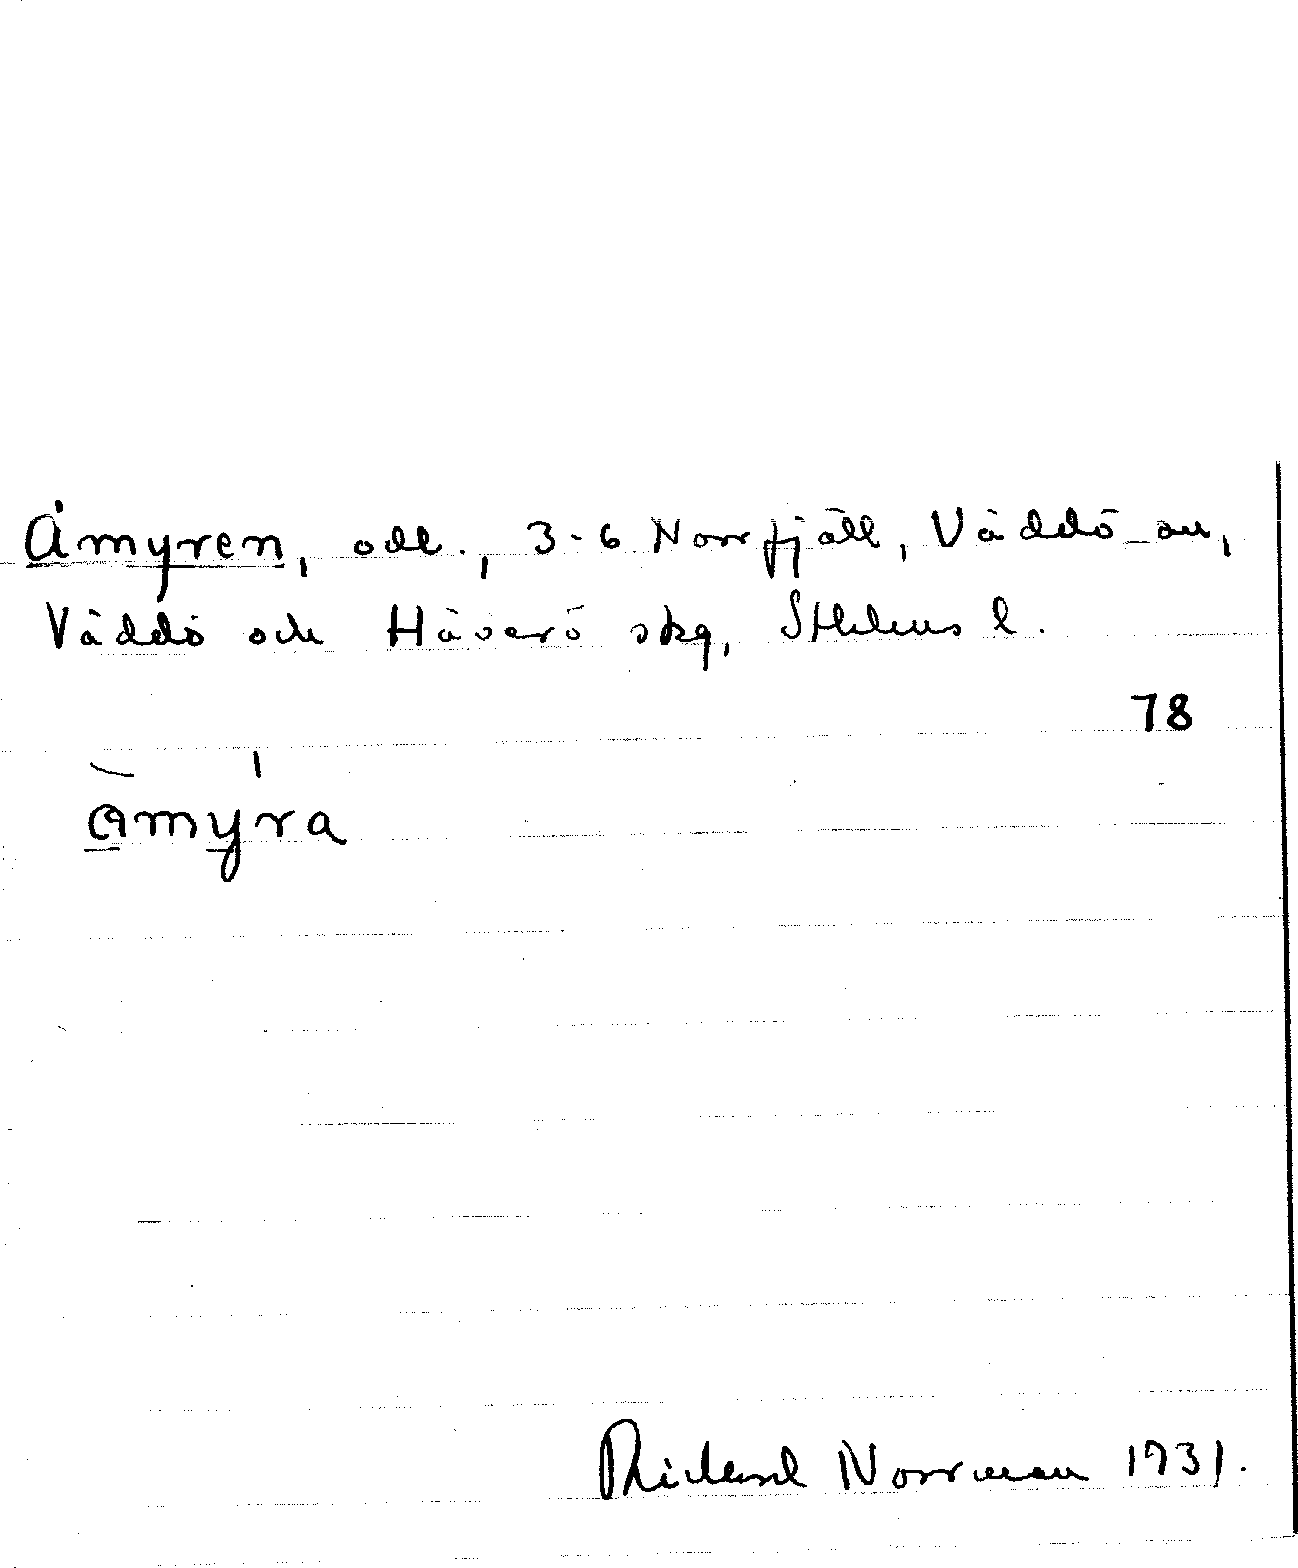 Åmyren, odl., 3-6 Norrfjäll, Väddö-an,
Väddö och Häverö skg, Sthlms l.
78
åmyra
Rickard Norrman 1931.